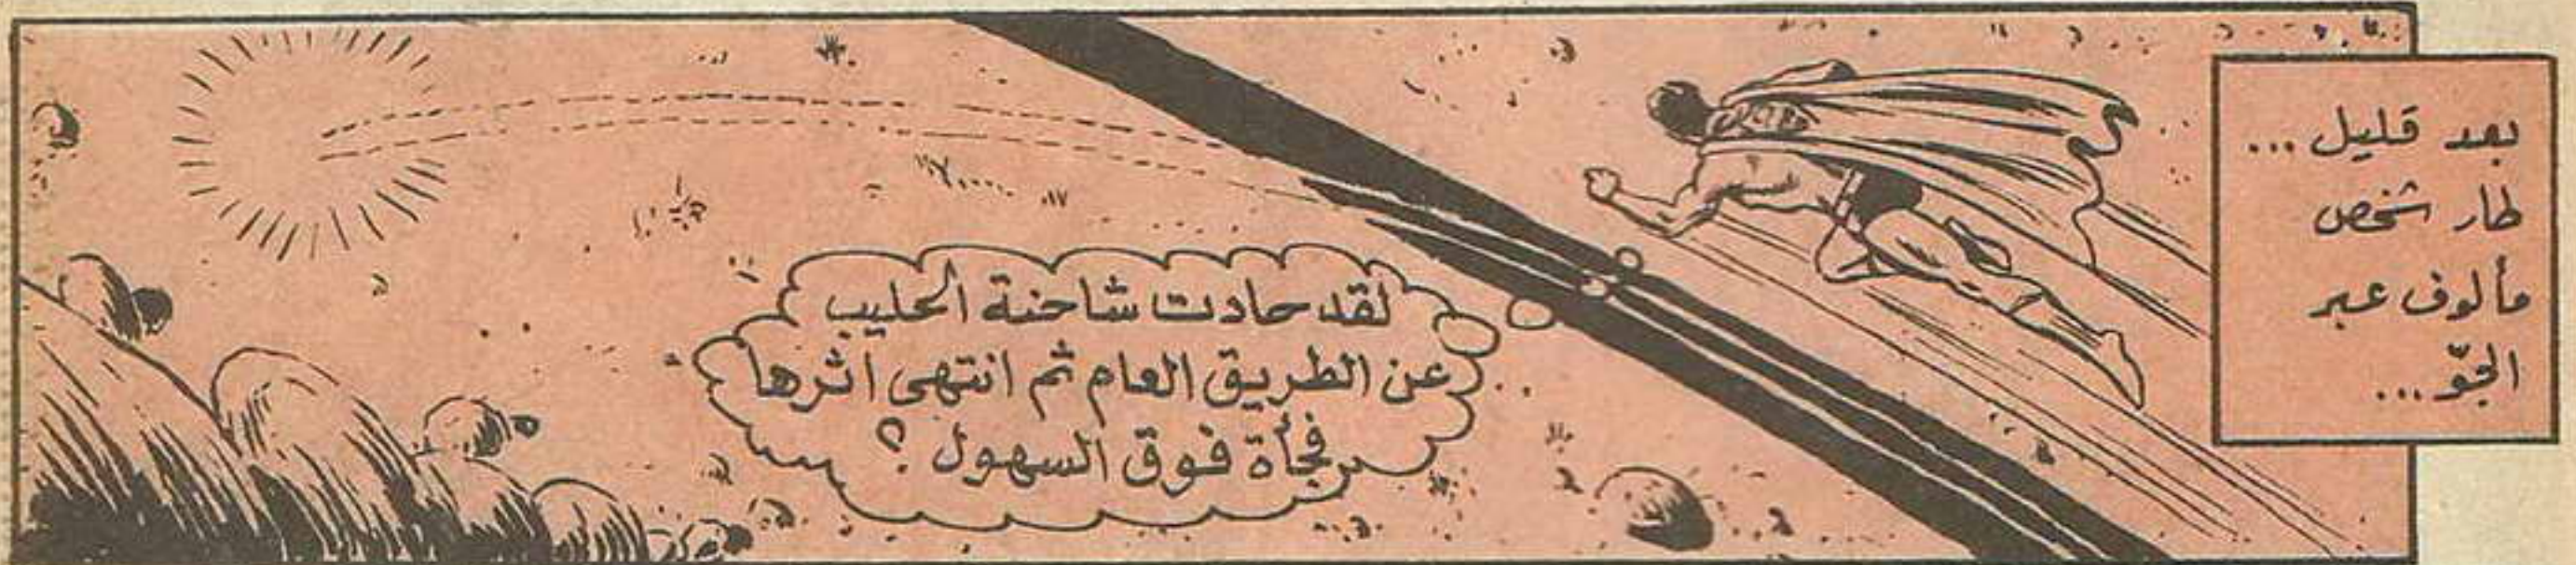 بعد قليل...
طار شخص
مألوف عبر
الجّو...
لقد حادت شاحنة الحليب
عن الطريق العام ثم انتهى اثرها
فجأة فوق السهول ؟